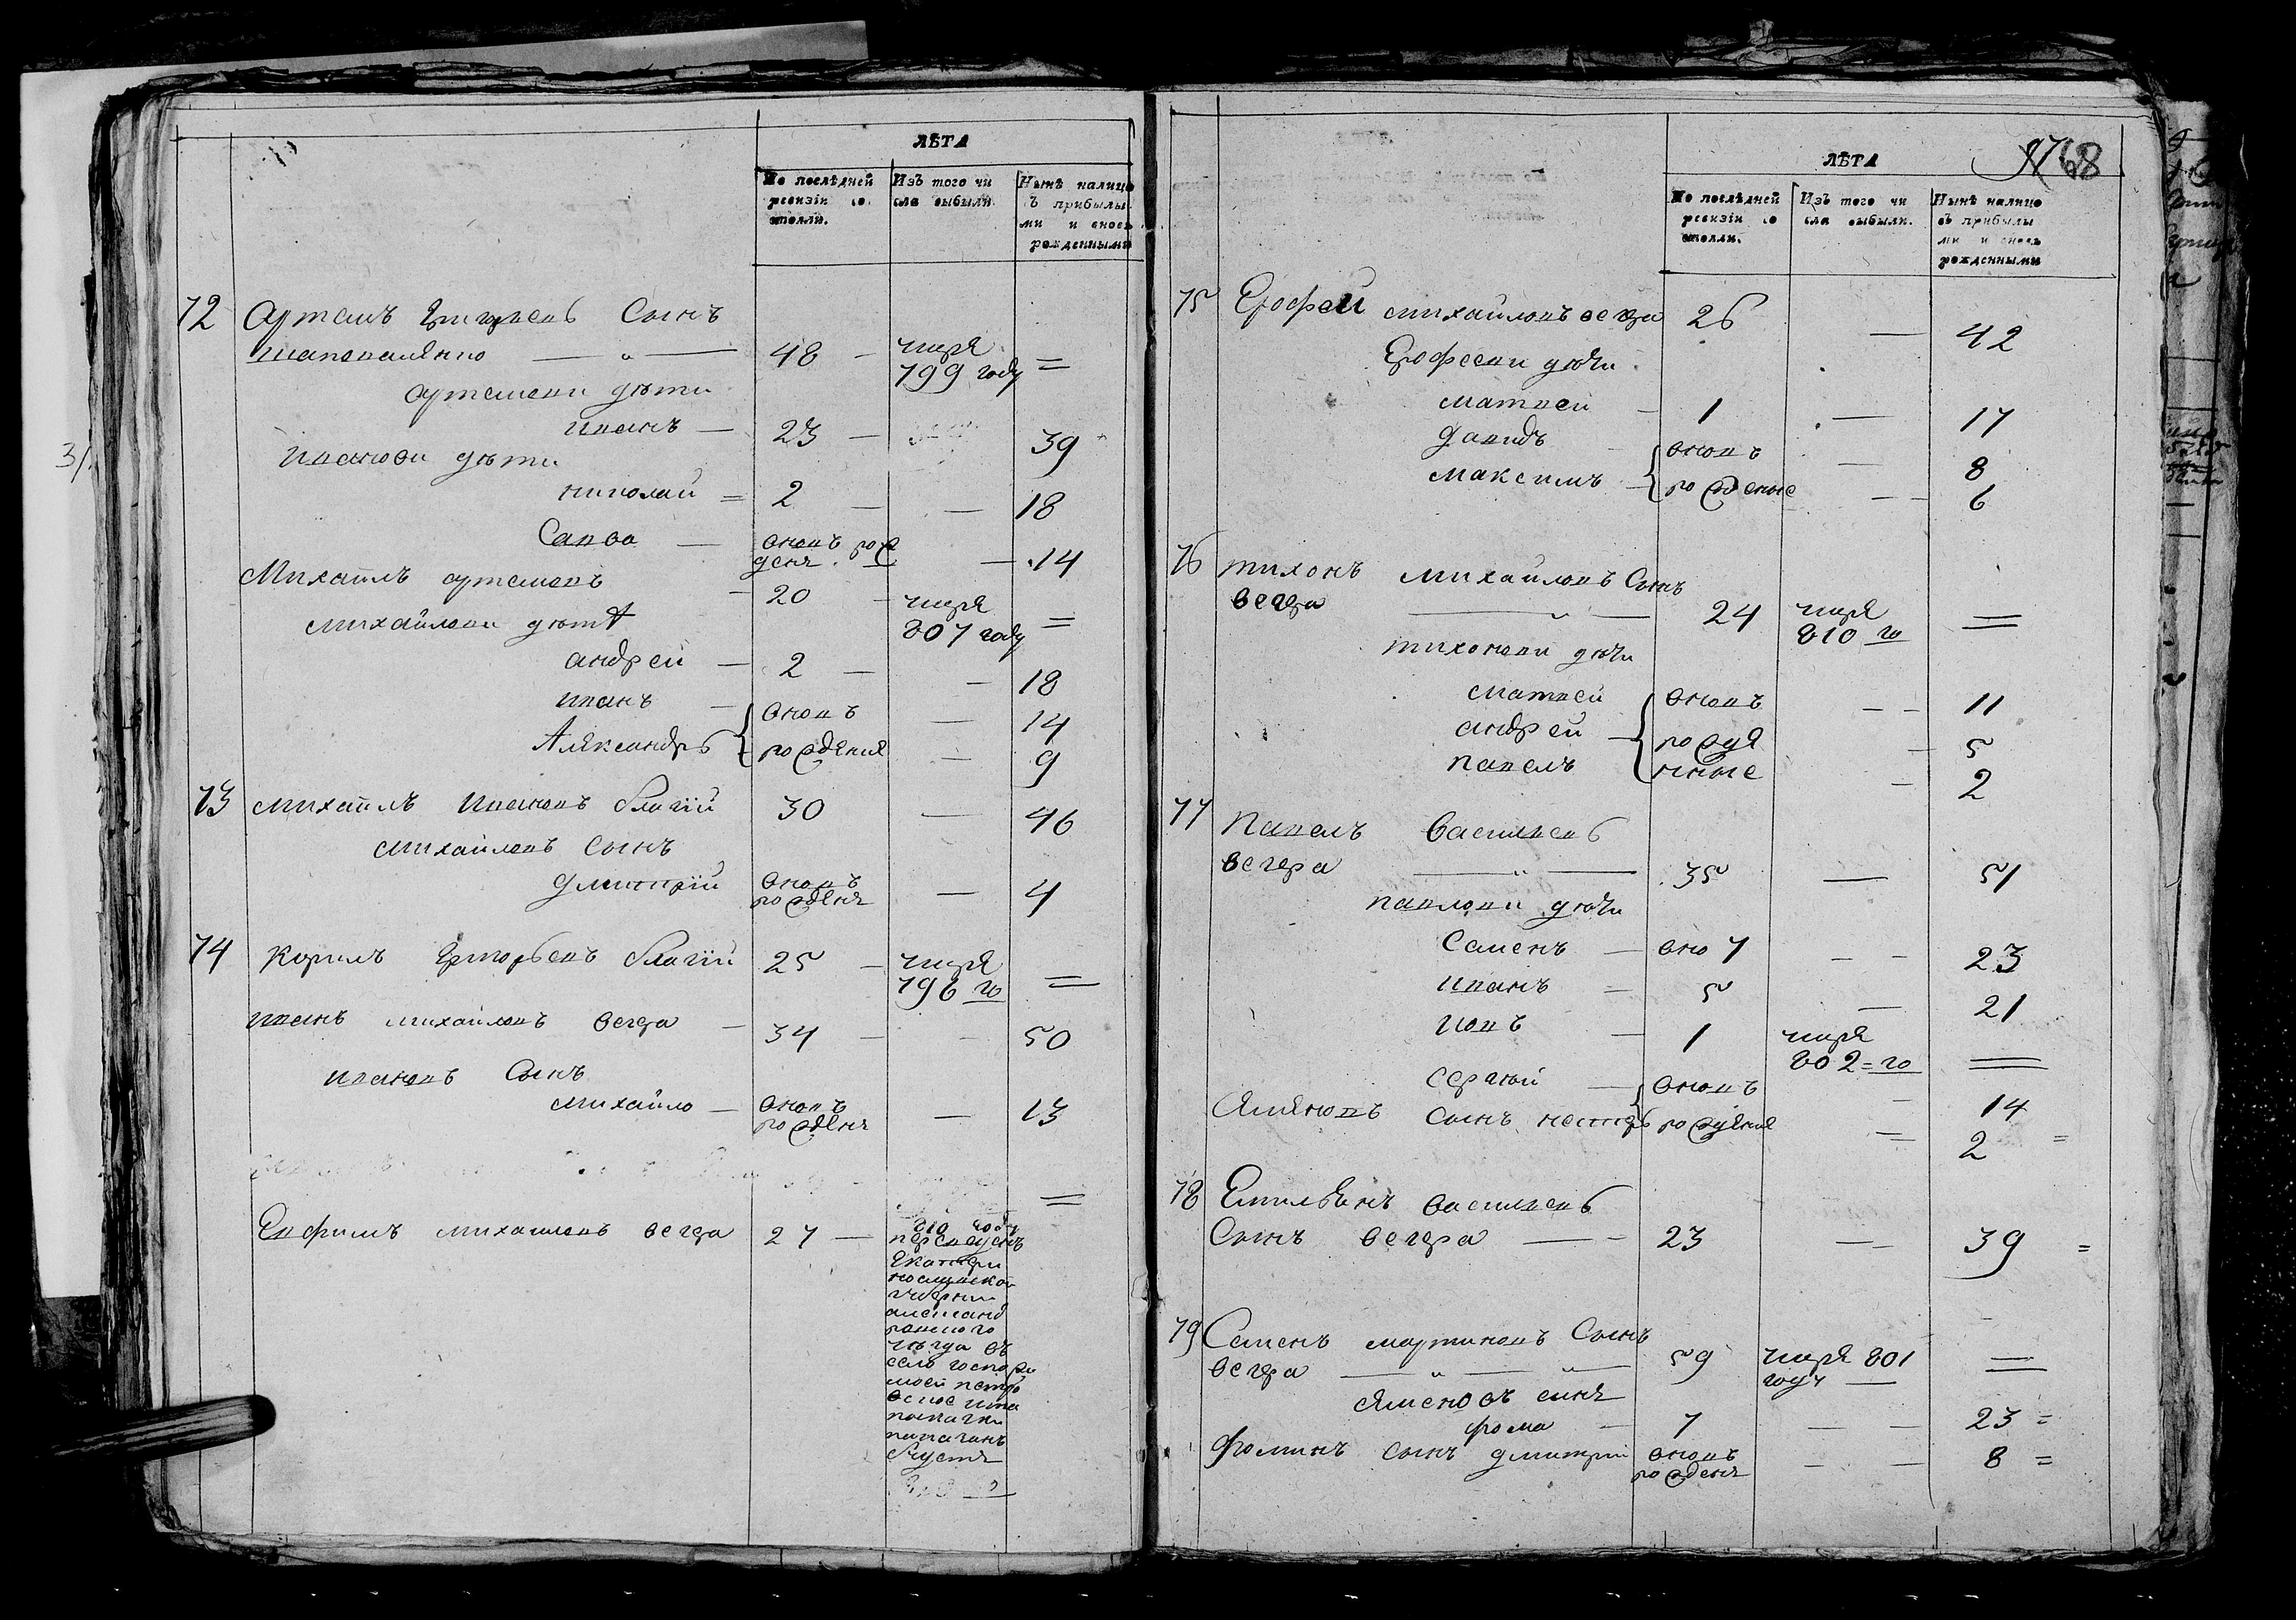 ЛѢТА
По послѣдней ревизіи со стояли.
Изъ того чи сла выбыли.
Нынѣ налицо
ъ прибылы
ми и вновь
рожденными
72 Артемъ Григорьевъ Сынъ
Шаповаленко — „ — 48 — умре
799 году =
Артемови дѣти
Иванъ — 23 — 39
Иванови дѣти
николай = 2 — — 18
Савва — вновь рож
денъ — 14
Михайлъ артемовъ — 20 — умре
807 году =
Михайлови дѣти
андрей — 2 — — 18
иванъ — вновь — 14
Александръ рождения — 9
73 михайлъ Ивановъ благій 30 — 46
михайловъ сынъ
дмитрій вновь
рожденъ — 4
74 Кирилъ Григорьевъ благій 25 — умре
796 го =
иванъ михайловъ вечера — 34 — — 50
ивановъ Сынъ
михайло — вновь
рожденъ — 13
=
Евфимъ михайловъ вечера 27 — 810 году
переведенъ
Екатери
нославской
губерніи
александ
ровского
уѣзда въ
село
768
ЛѢТА
По послѣдней ревизіи со стояли.
Изъ того чи сла выбыли.
Нынѣ налицо
въ прибылы
ми и вновь
рожденными
75 Ерофей михайловъ вечера 26 — 42
Ерофееви дѣти
матвей — 1 — 17
давидъ вновь — 8
максимъ — рожденые — — 6
76 тихонъ михайловъ Сынъ
вечера — „ — 24 умре
810 го =
тихонови дѣти
матвей вновь — — 11
андрей — рожде — 5
павелъ нные — 2
77 павелъ васильевъ
вечера — „ — 35 — 51
павлови дѣти
Саменъ — 7 — — 23
иванъ — 5 — 21
иовъ — 1 умре
802 = го =
сергий — вновь — 14
Сынъ нестеръ рождения — 2 =
78 Емильянъ васильевъ
Сынъ вечера — — 23 — 39 =
79 Саменъ мартиновъ Сынъ
вечера — „ — „ — 59 умре 801
году — =
сяменовъ синъ
фома — 7 — — 23 =
фоминъ сынъ дмитрий вновь
рожденъ — — 8 =